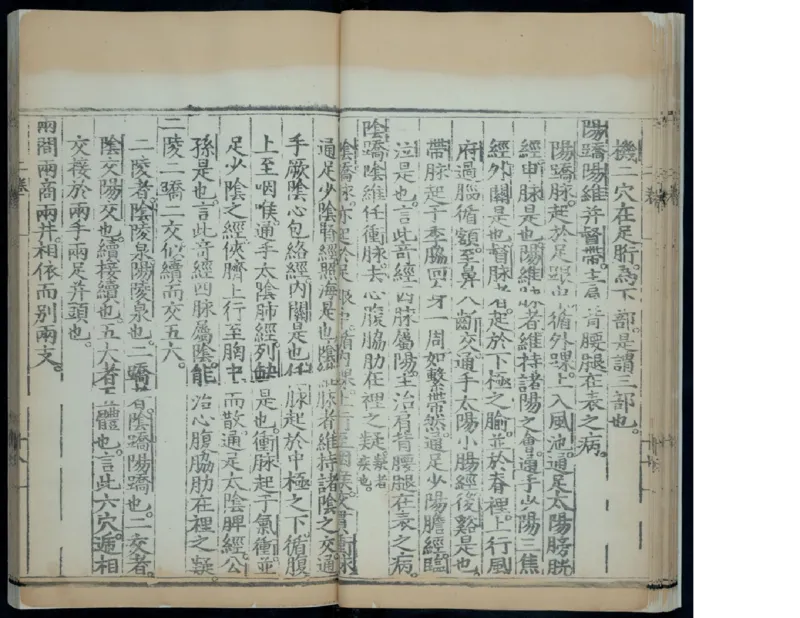 機二穴在足胻爲下部是謂三部也。
陽蹻陽維并督帶主肩背腰腿在表之病。
陽蹻脉起於足跟中循外踝上入風池通足太陽膀胱
經申脉是也陽維脉者維持諸陽之會通手少陽三焦
經外關是也督脉者起於下極之腧並於脊裡上行風
府過腦循額至鼻入齗交通手太陽小腸經後谿是也
帶脉起于季脇回身一周如繫帶然通足少陽膽經臨
泣是也言此奇經四脉屬陽主治肩背腰腿在表之病。
陰蹻陰維任衝脉去心腹脇肋在裡之疑疑者疾也
陰蹻脉亦起於足跟中循內踝上行至咽喉交貫衝脉
通足少陰腎經照海是也陰維脉者維持諸陰之交通
手厥陰心包絡經內關是也任脉起於中極之下循腹
上至咽喉通手太陰肺經列缺是也衝脉起于氣衝並
足少陰之經俠臍上行至胸中而散通足太陰脾經公
孫是也言此奇經四脉屬陰能治心腹脇肋在裡之疑
二陵二蹻二交似續而交五六。
二陵者陰陵泉陽陵泉也二蹻者陰蹻陽蹻也二交者
陰交陽交也續接續也五六者五體也言此六穴遞相
交接於兩手兩足并頭也。
兩間兩商兩井相依而別兩支。